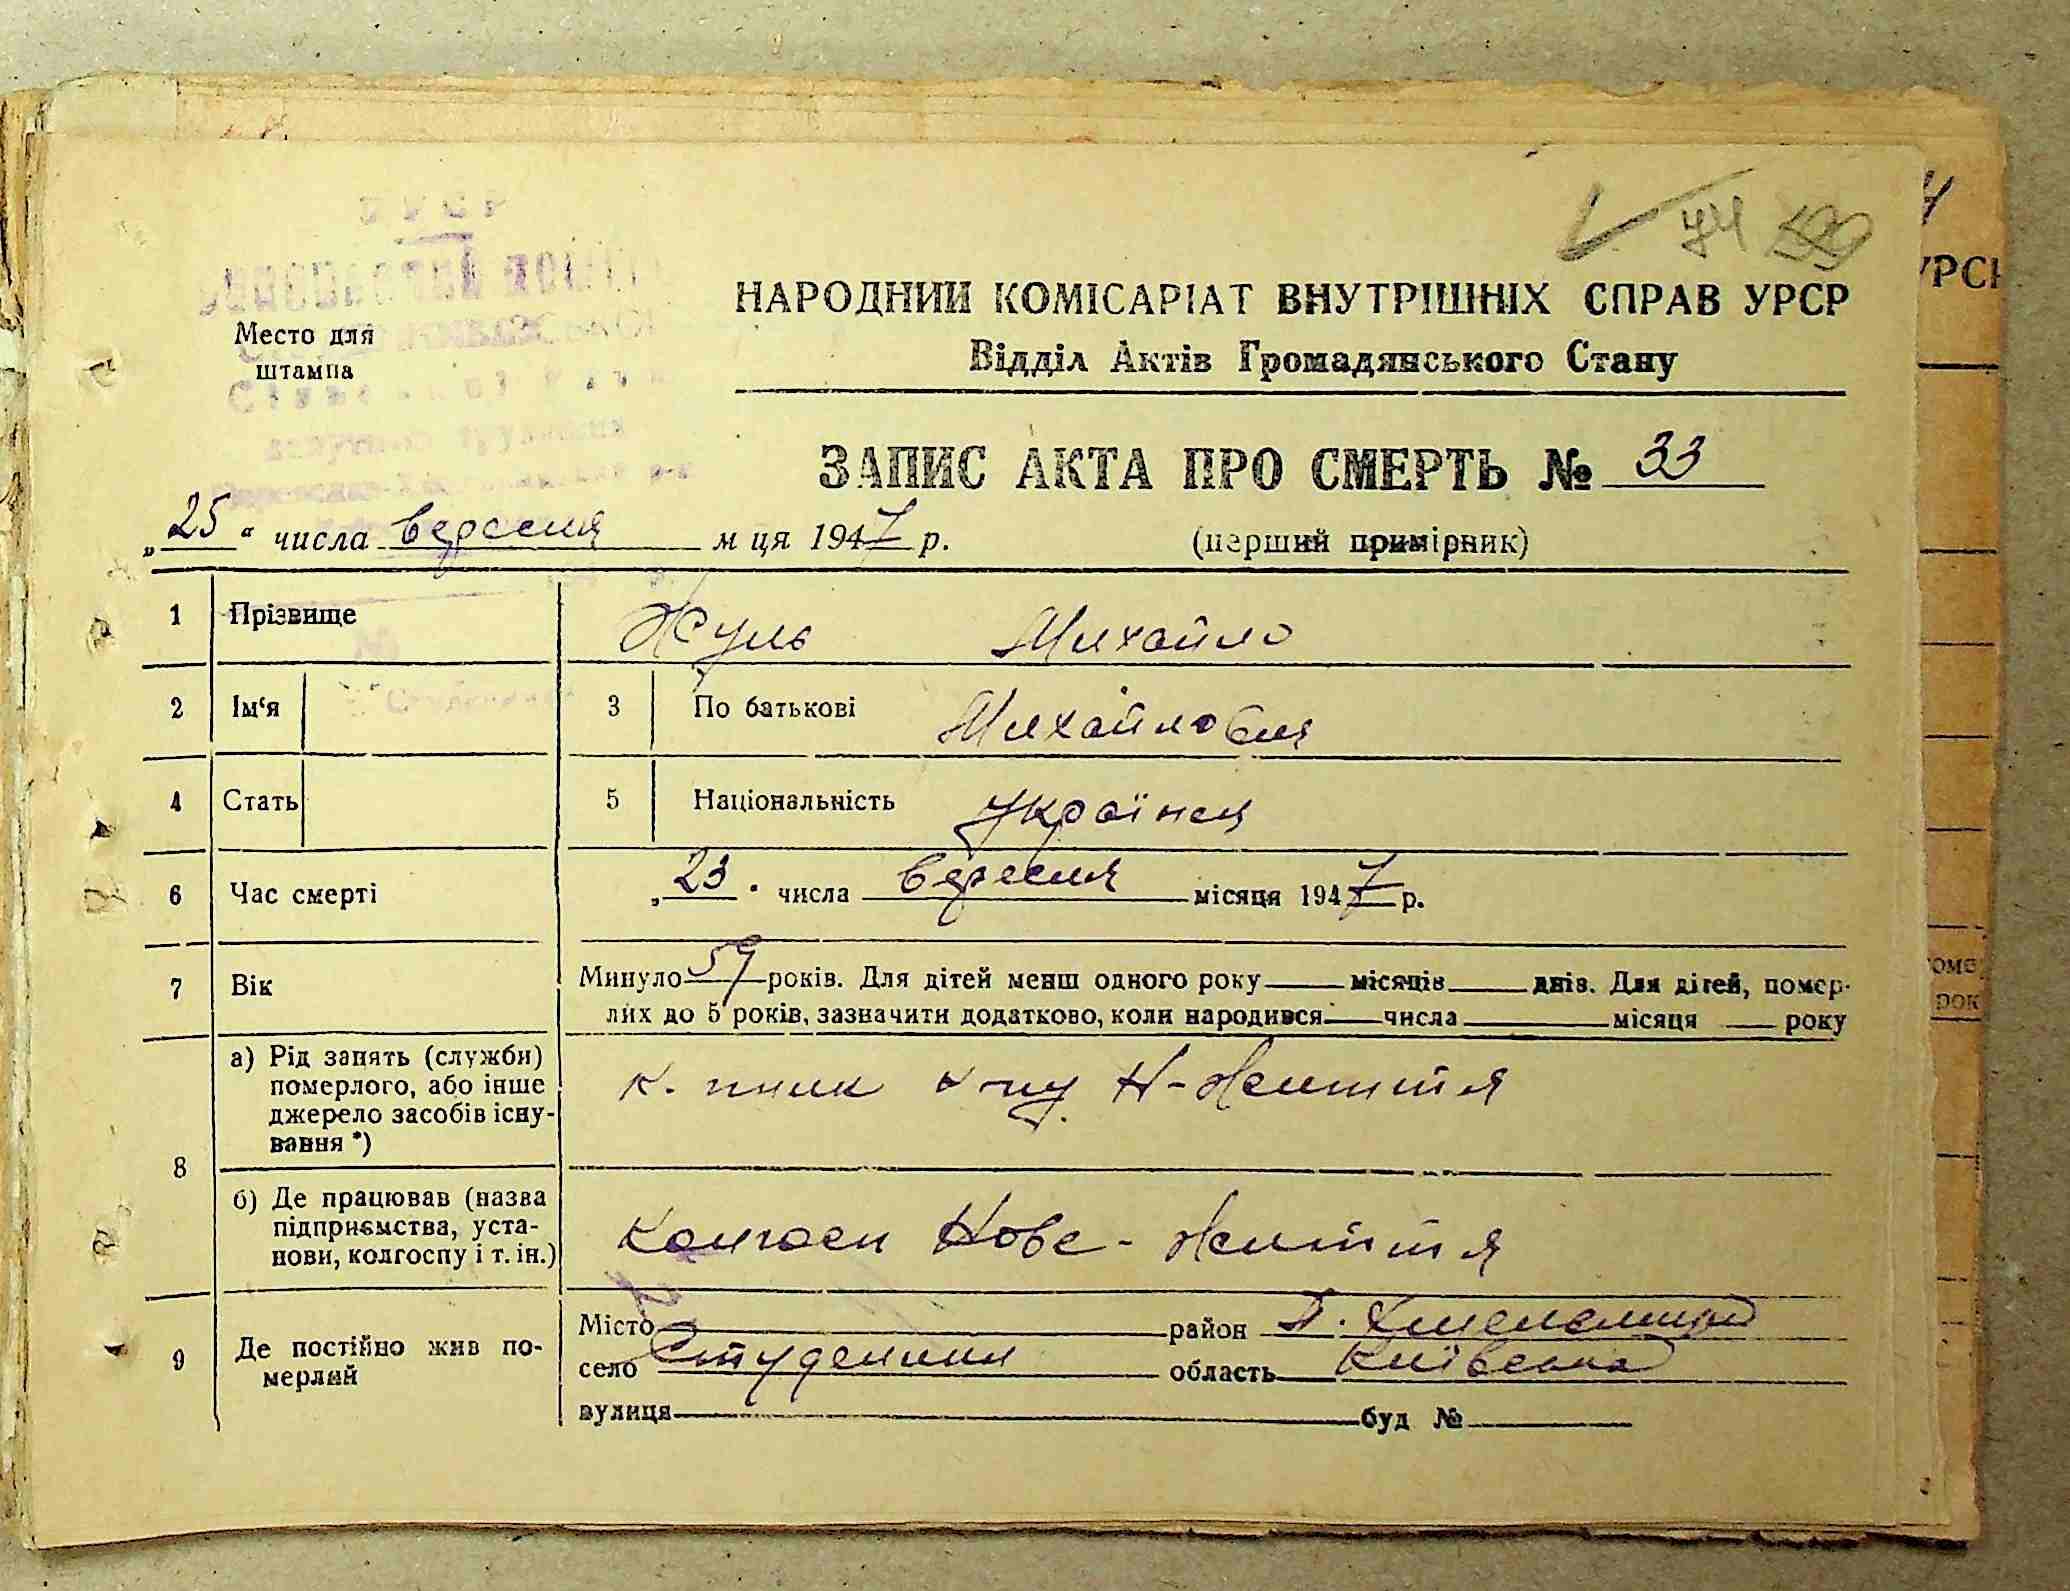 УРСР
74
НАРОДНИЙ КОМІСАРІАТ ВНУТРІШНІХ СПРАВ УРСР
Место для
штампа
Відділ Актів Громадянського Стану
ЗАПИС АКТА ПРО СМЕРТЬ № 33
„25“ числа вересня м ця 1947 р.
(перший примірник)
1 Прізвище Жуль Михайло
2 Ім‘я 3 По батькові Михайлович
4 Стать 5 Національність Українец
6 Час смерті „23“ числа вересня місяця 1947 р.
7 Вік Минуло 59 років. Для дітей менш одного року місяців днів. Для дітей, помер-
лих до 5 років, зазначити додатково, коли народився числа місяця року
8 а) Рід занять (служби)
померлого, або інше
джерело засобів існу-
вання *)
к. Н-Життя
б) Де працював (назва
підприємства, уста-
нови, колгоспу і т. ін.)
Колгосп Нове-Життя
9 Де постійно жив по-
мерлий
Місто район П. Хмельниц
село Студеники область Київська
вулиця буд №